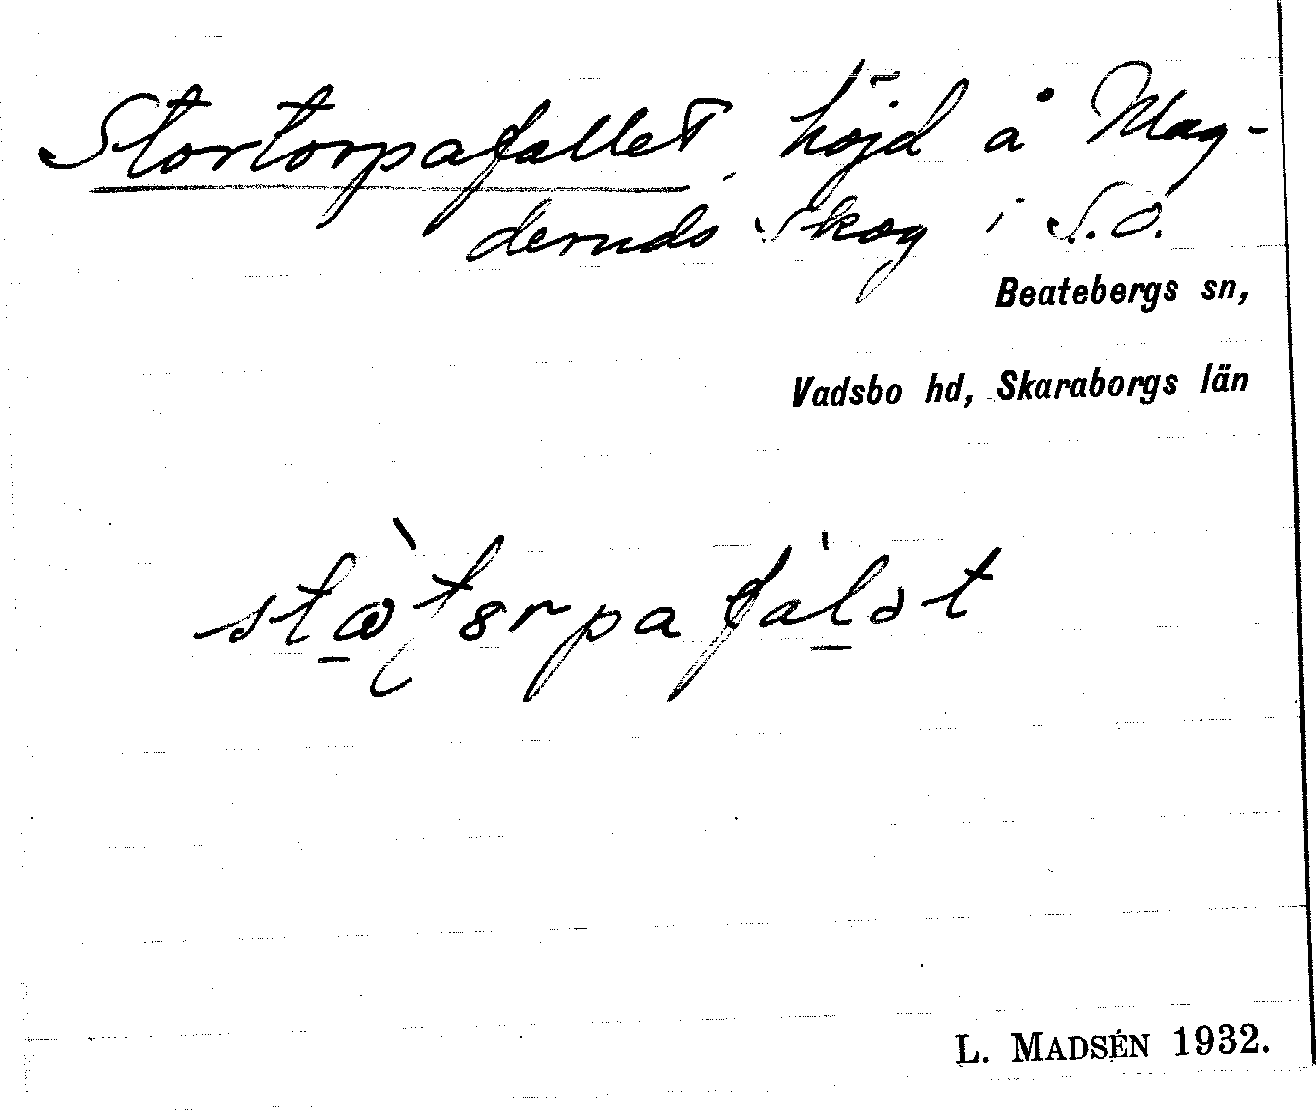 Stortorpafallet, höjd å Mag-
deruds skog i S.O.
Beatebergs sn,
Vadsbo hd, Skaraborgs län
L. MADSÉN 1932.